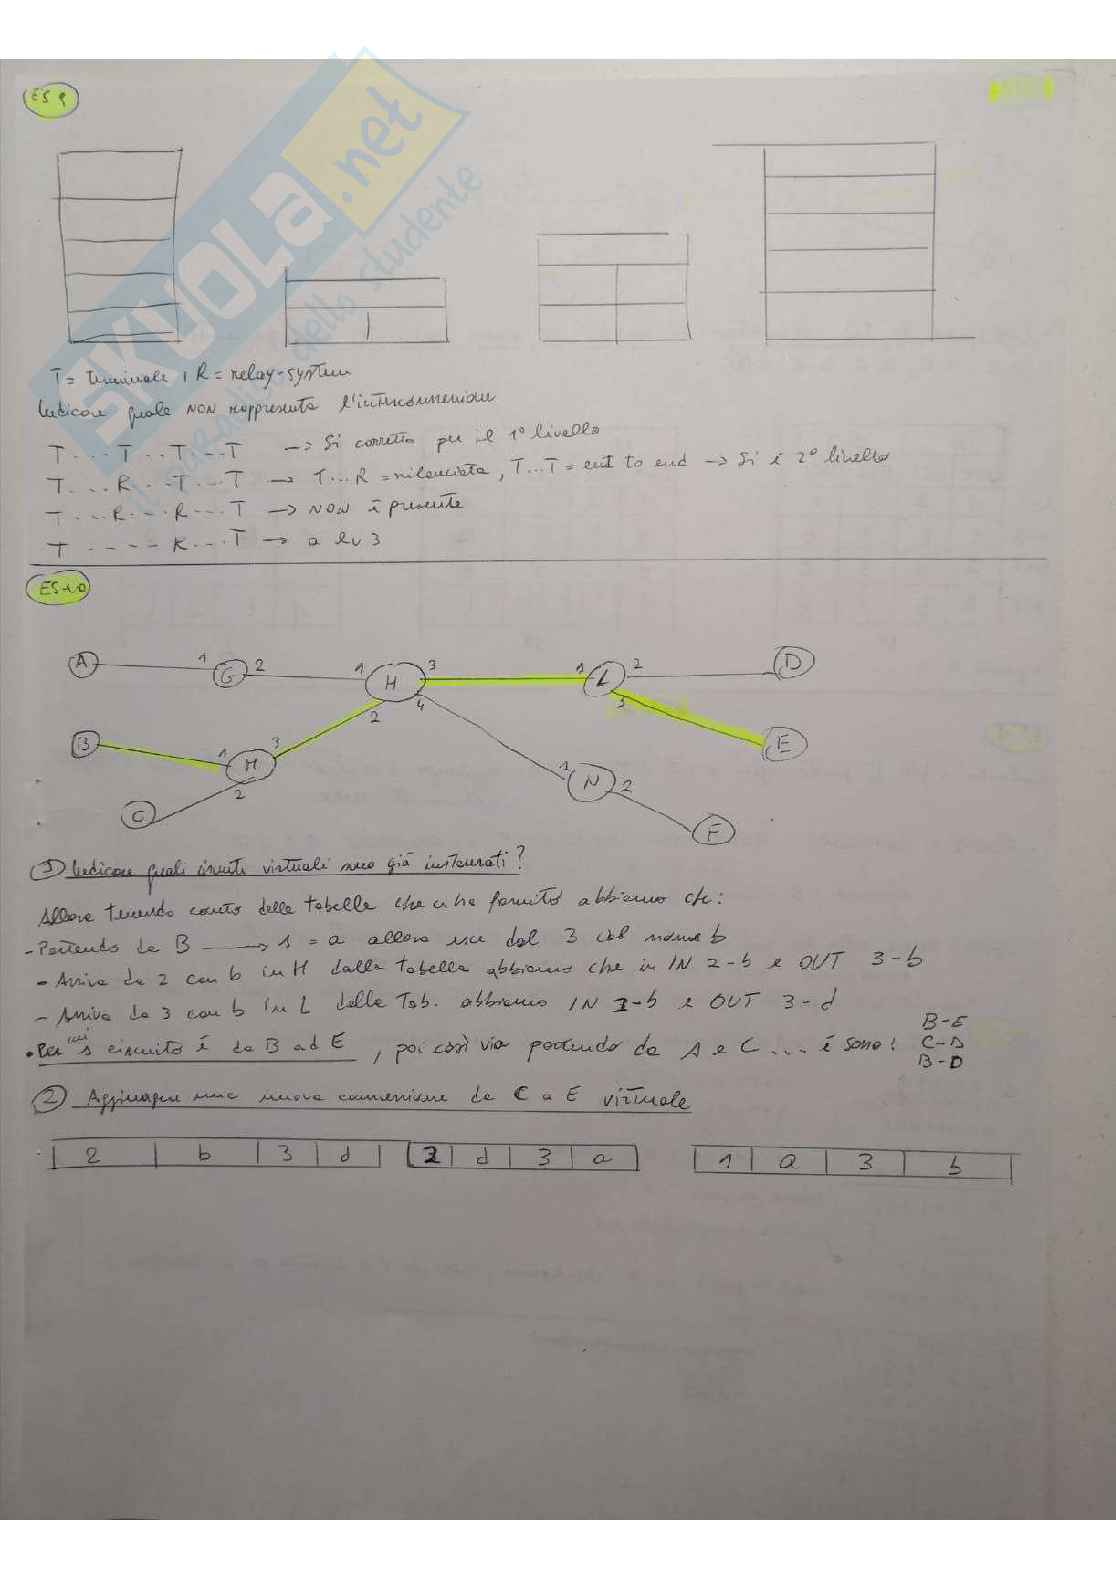 ES 9
SKUOLA.net
paradiso dello studente
T = terminale , R = relay-system
Indicare quale NON rappresenta l'interconnessione
T....T...T...T → Si corretto per il 1° livello
T....R...T...T → T...R = rilanciata, T...T = ent to end → Si è 2° livello
T....R...R...T → NON è presente
T.....R...T → a lv 3
ES 10
A 1 G 2 1 H 3 1 L 2 D
2 4 3
B 1 M 3 E
2 1 N 2
C F
1) Indicare quali circuiti virtuali sono già instaurati?
Allora tenendo conto delle tabelle che ci ha fornito abbiamo che:
- Partendo da B → 1 = a allora esce dal 3 col nome b
- Arriva da 2 con b in H dalla tabella abbiamo che in IN 2-b e OUT 3-b
- Arriva da 3 con b in L dalla Tab. abbiamo IN 1-b e OUT 3-d
• Per cui 1 circuito è da B ad E , poi così via partendo da A e C ... e sono: B-E
C-D
B-D
2) Aggiungere una nuova connessione da C a E virtuale
2 b 3 d 2 d 3 a 1 a 3 b